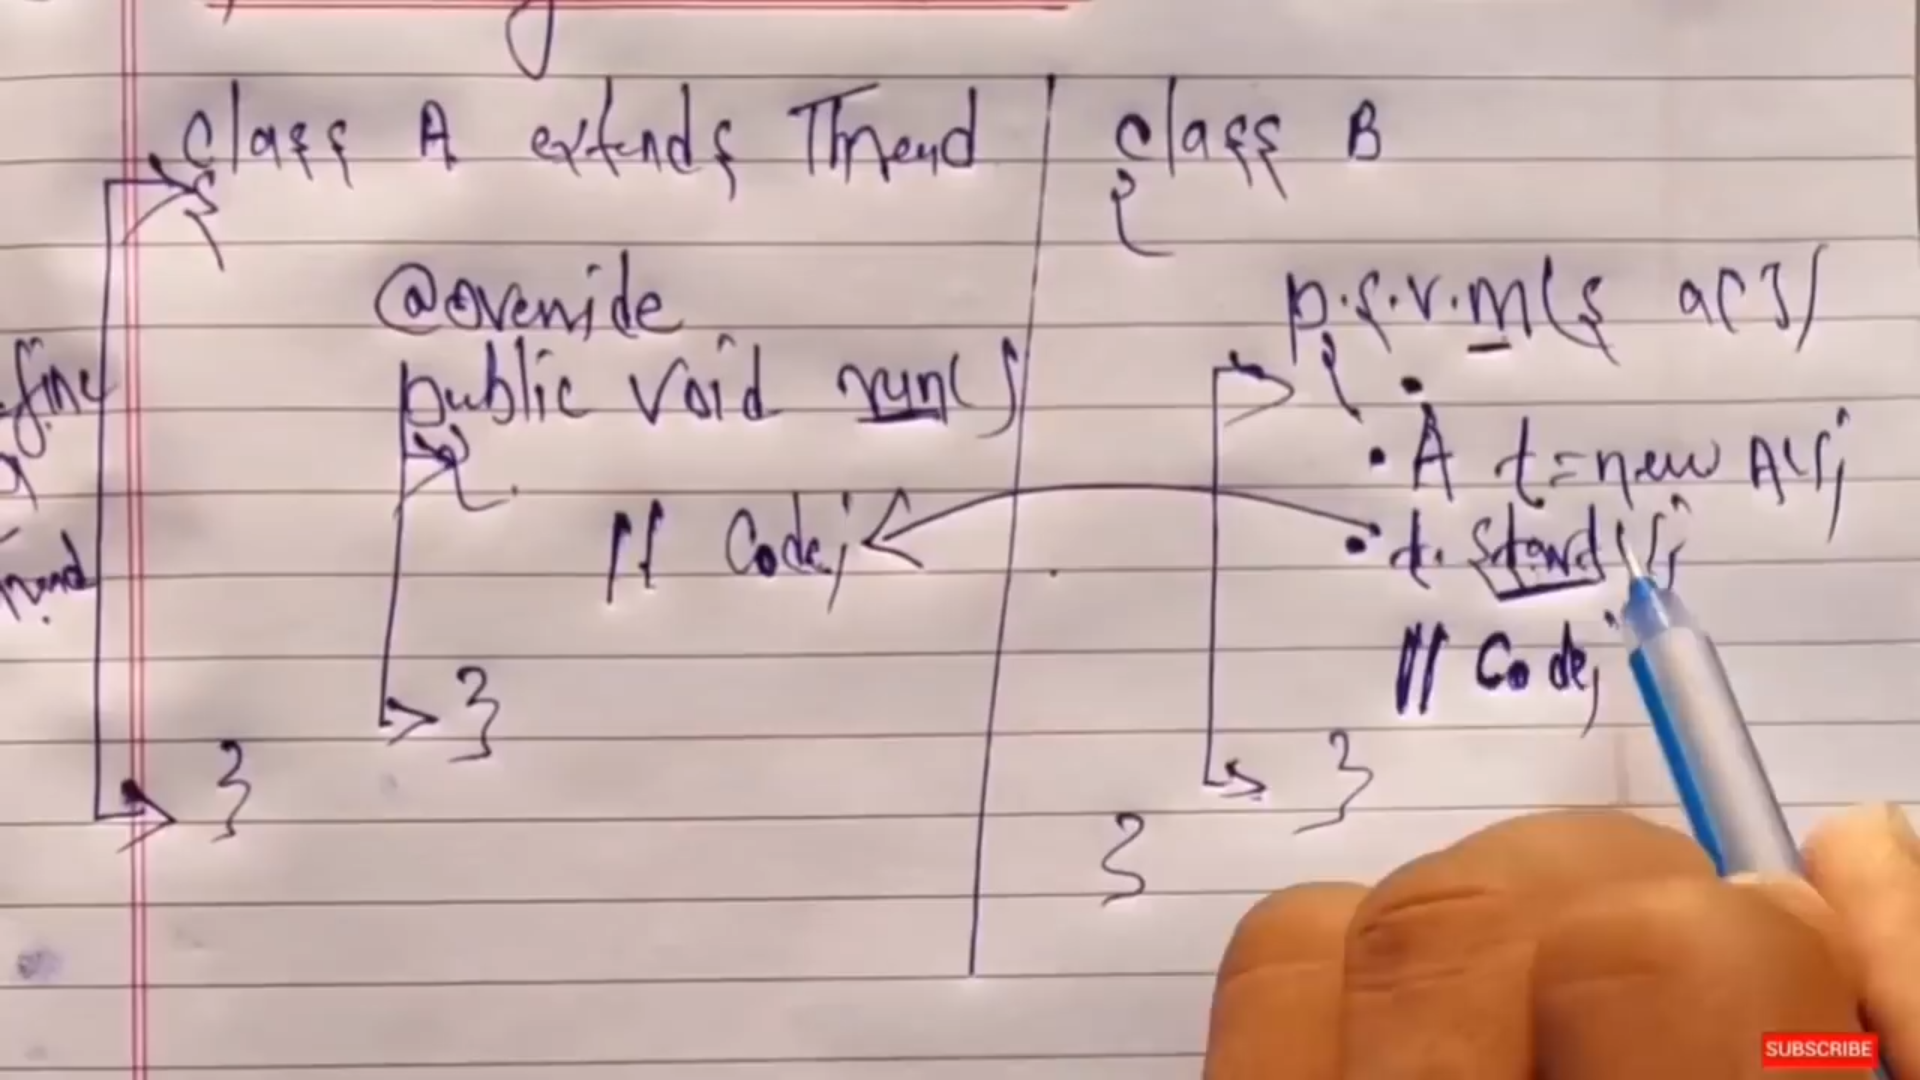 class A extends Thread
{
@override
public void run()
{
// Code;
}
}
class B
{
p.s.v.m(s a[])
{
A t=new A();
t.start();
// Code;
}
}
SUBSCRIBE